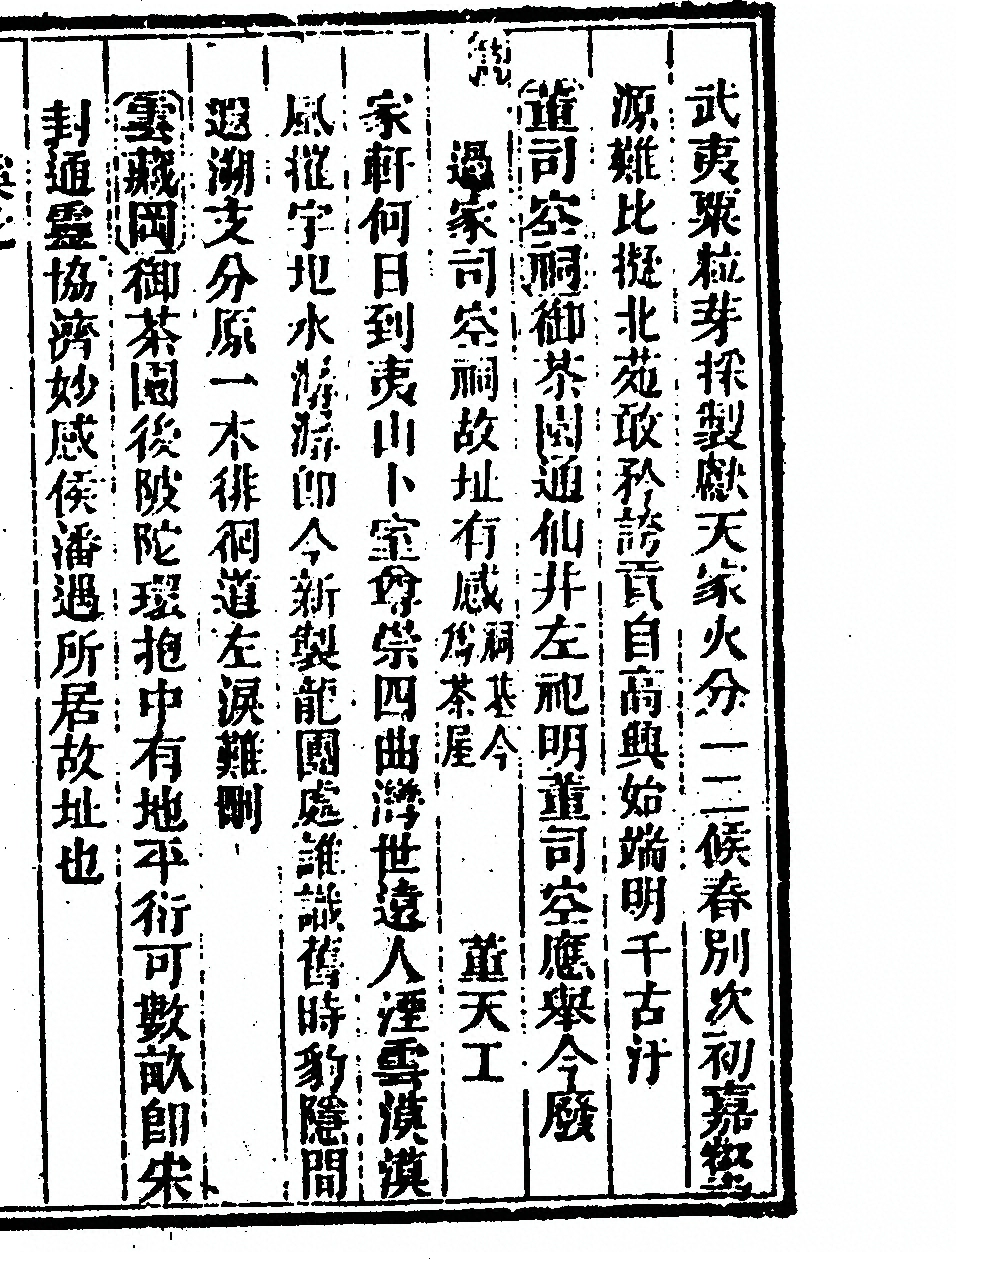 武夷粟粒芽採製獻天家火分一二候春別次初嘉壑
源難比擬北苑敢矜誇貢自高興始端明千古汙
董司空祠御茶園通仙井左祀明董司空應舉今廢
過家司空祠故址有感祠基今爲茶屋 董天工
家軒何日到夷山卜室尊崇四曲灣世遠人湮雲漠漠
風摧宇圯水潺潺卽今新製龍團處誰識舊時豹隱間
遐溯支分原一木徘徊道左淚難刪
雲藏岡御茶園後陂陀環抱中有地平衍可數畝卽宋
封通靈協濟妙感侯潘遇所居故址也